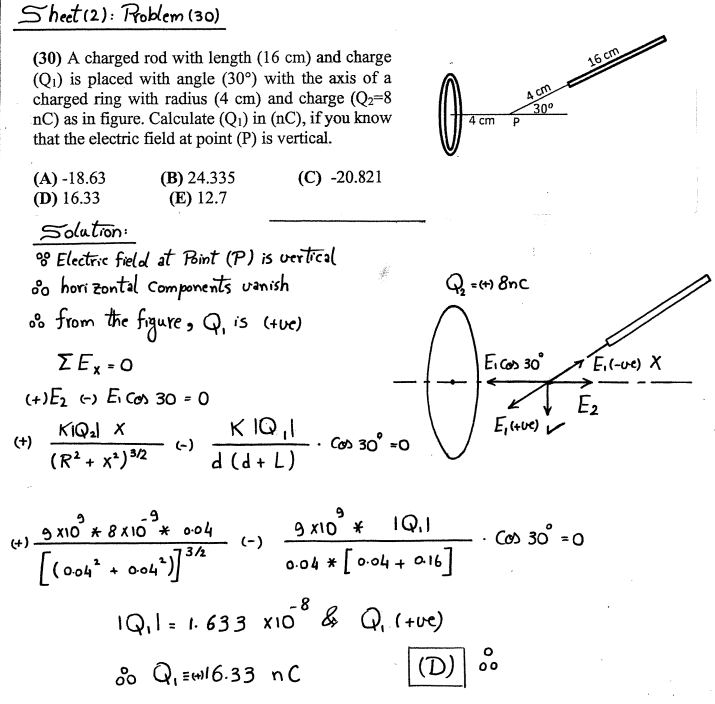 Sheet(2): Problem (30)
(30) A charged rod with length (16 cm) and charge
(Q₁) is placed with angle (30º) with the axis of a
charged ring with radius (4 cm) and charge (Q₂=8
nC) as in figure. Calculate (Q₁) in (nC), if you know
that the electric field at point (P) is vertical.
16 cm
4 cm
30º
4 cm P
(A) -18.63 (B) 24.335 (C) -20.821
(D) 16.33 (E) 12.7
Solution:
∵ Electric field at Point (P) is vertical
∴ horizontal components vanish
∴ from the figure, Q₁ is (+ve)
ΣEx = 0
(+)E₂ (-) E₁ Cos 30 = 0
(+) K|Q₂| X / (R² + x²)^3/2 (-) K |Q₁| / d (d + L) · Cos 30° = 0
Q₂ = (+) 8nC
E₁ Cos 30°
E₁ (-ve) X
E₂
E₁ (+ve) ✓
(+) 9 x10⁹ * 8 x10⁻⁹ * 0.04 / [(0.04² + 0.04²)]^3/2 (-) 9 x10⁹ * |Q₁| / 0.04 * [0.04 + 0.16] · Cos 30° = 0
|Q₁| = 1.633 x10⁻⁸ & Q₁ (+ve)
∴ Q₁ = (+)16.33 nC (D) ∴